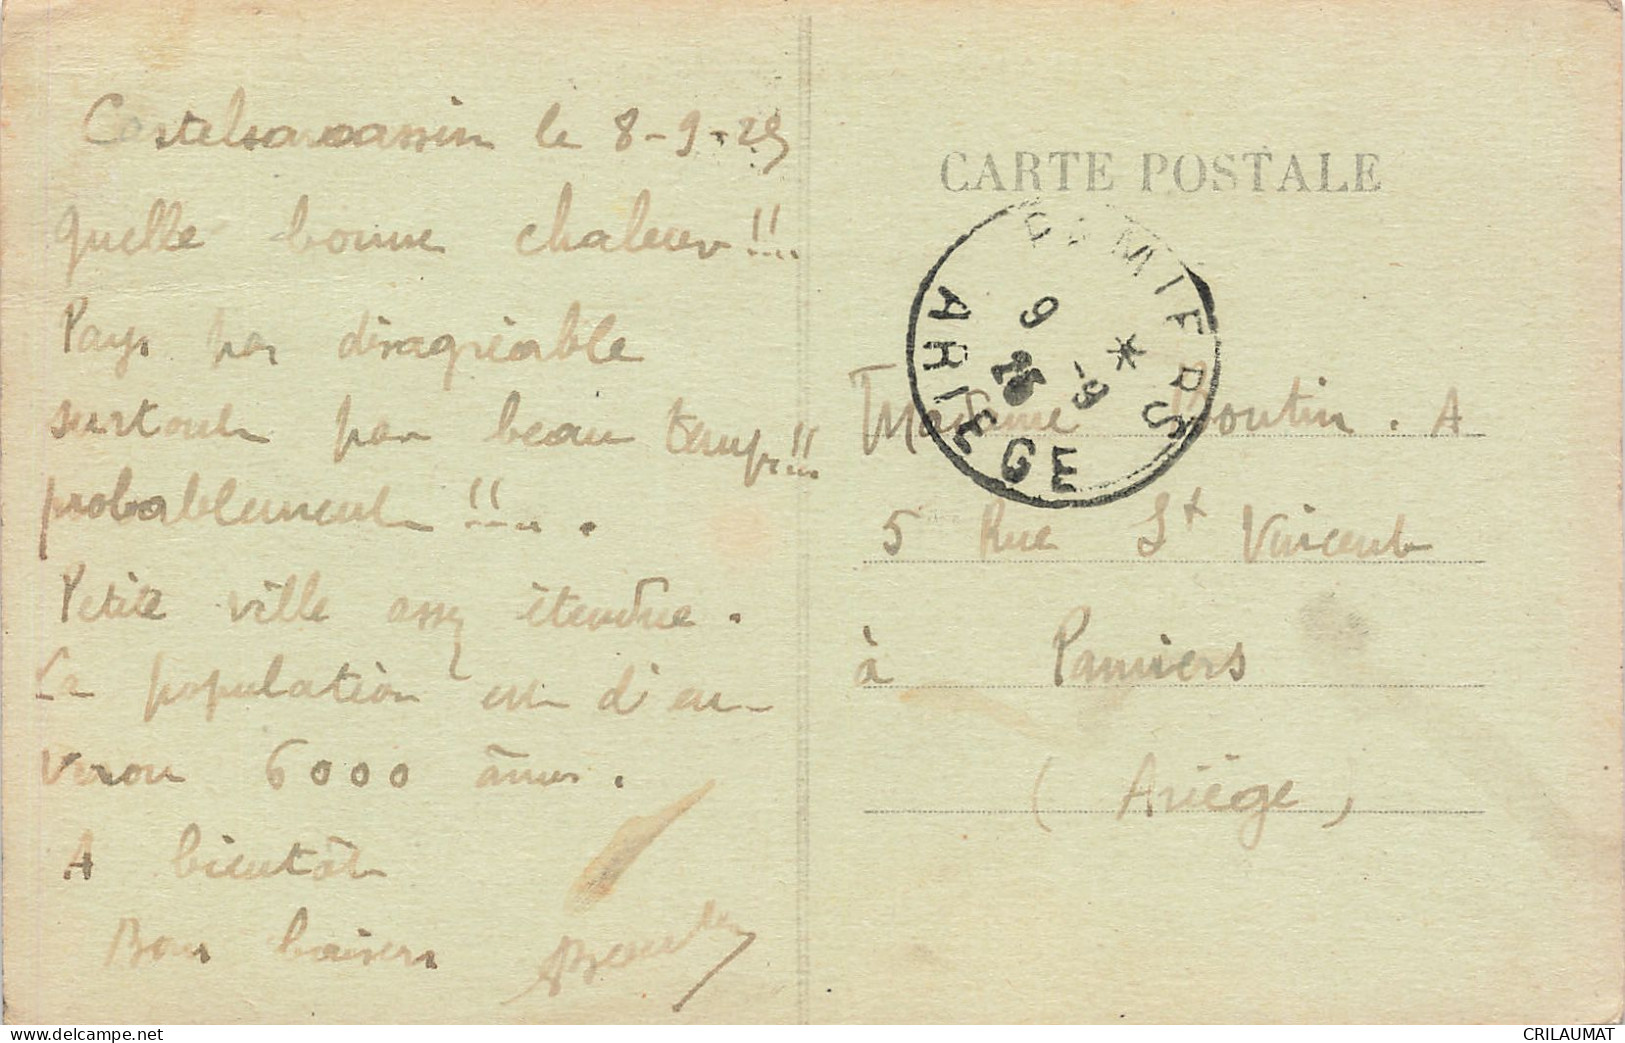 Castelsarrasin le 8-9-25
Quelle bonne chaleur!!..
Pays pas désagréable
surtout par beau temps!!..
probablement!!.. .
Petite ville assez étendue.
La population est d'en-
viron 6000 âmes.
A bientôt
Bons baisers
CARTE POSTALE
PAMIERS
9
*
25
-9
ARIEGE
Madame Boutin. A
5 Rue St Vincent
à Pamiers
(Ariège)
www.delcampe.net
CRILAUMAT